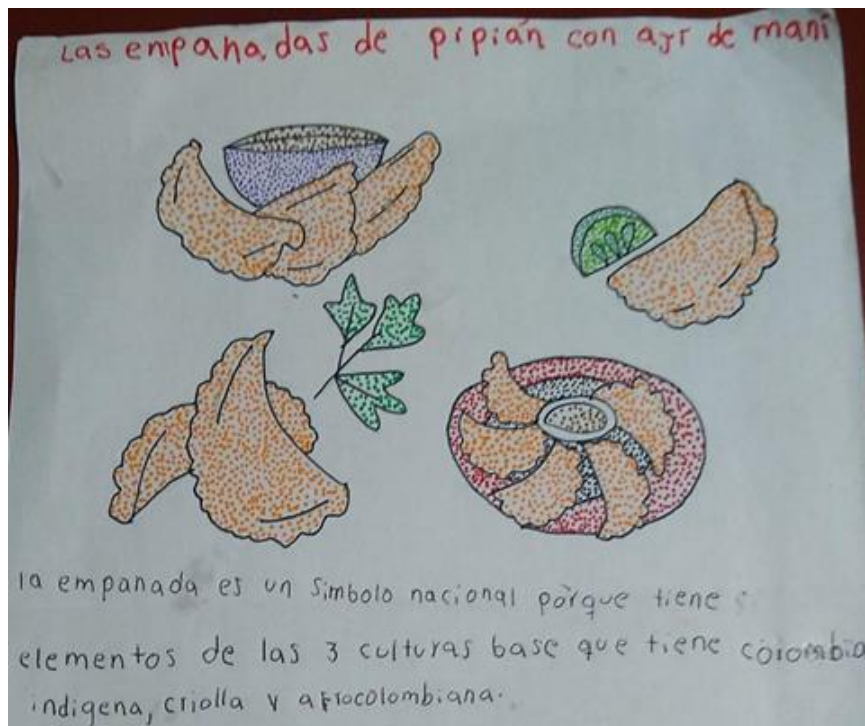 Las empanadas de pipián con ají de maní
la empanada es un simbolo nacional porque tiene
elementos de las 3 culturas base que tiene colombia
indigena, criolla y afrocolombiana.